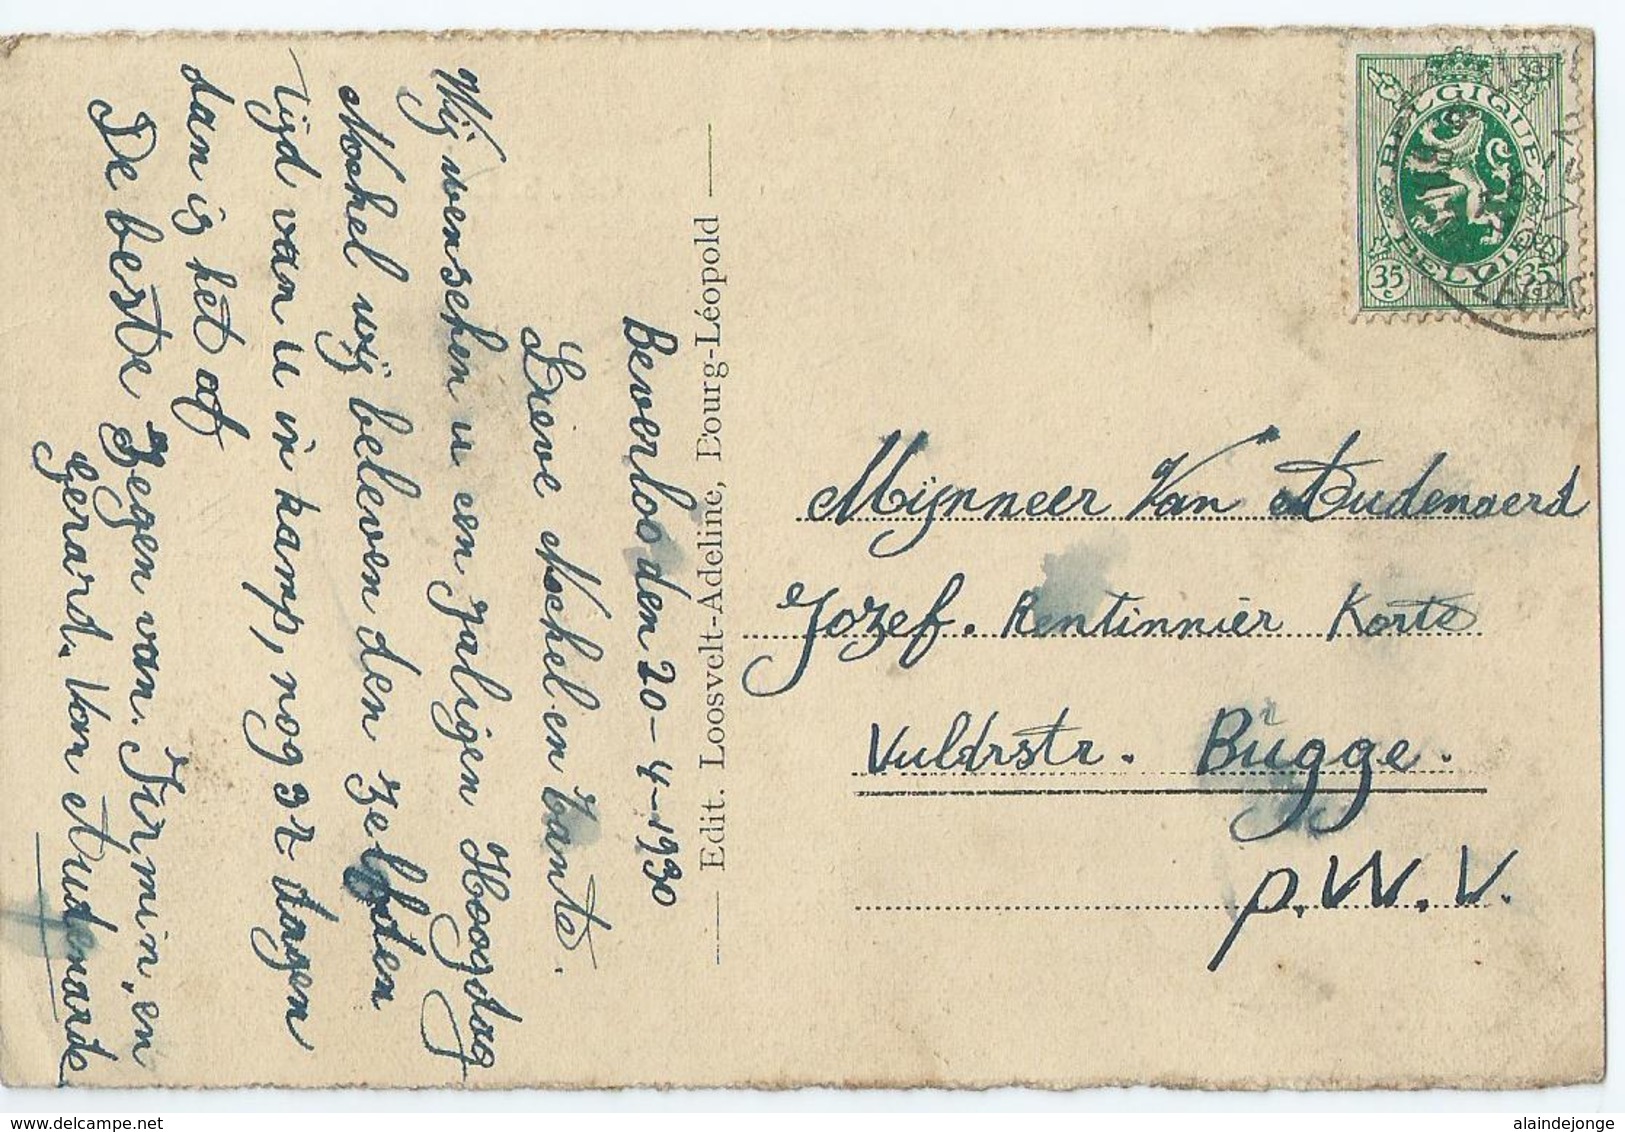 Beverloo den 20-4-1930
Lieve Nochel en tante.
Wij wenschen u en zaligen Hoogdag
Nochel wij beleven den zelfden
tijd van u in kamp, nog 32 dagen
dan is het af
De beste Zegen van. Firmin, en
Gerard. Van Audenarde
Edit. Loosvelt-Adeline, Bourg-Léopold
BELGIQUE
BELGIË
35 c
35 c
Mijnneer Van Audenaerd
Jozef. Rentinnier Korte
Vuldrstr. Bugge.
p. W. V.
delcampe.net
alaindejonge